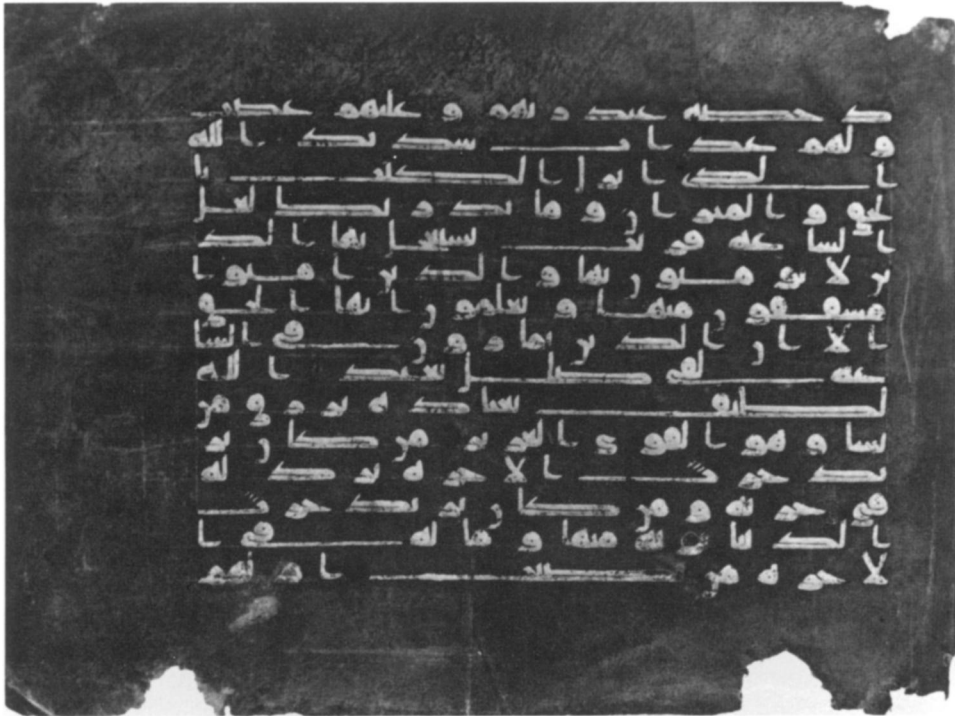 دحضه عند ربهم و عليهم غضب
و لهم عذاب شديد الله
الذي انزل الكتب با
لحق و الميزان و ما يدريك لعل
الساعه قريب يستعجل بها الذ
ين لا يومنون بها و الذين امنوا
مشفقون منها و يعلمون انها الحق
الا ان الذين يمارون في السا
عه لفي ضلل بعيد الله
لطيف بعباده يرزق من
يشا و هو القوي العزيز من كان ير
يد حرث الاخره نزد له
في حرثه و من كان يريد حرث
الدنيا نوته منها و ما له في ا
لاخره من نصيب ام لهم